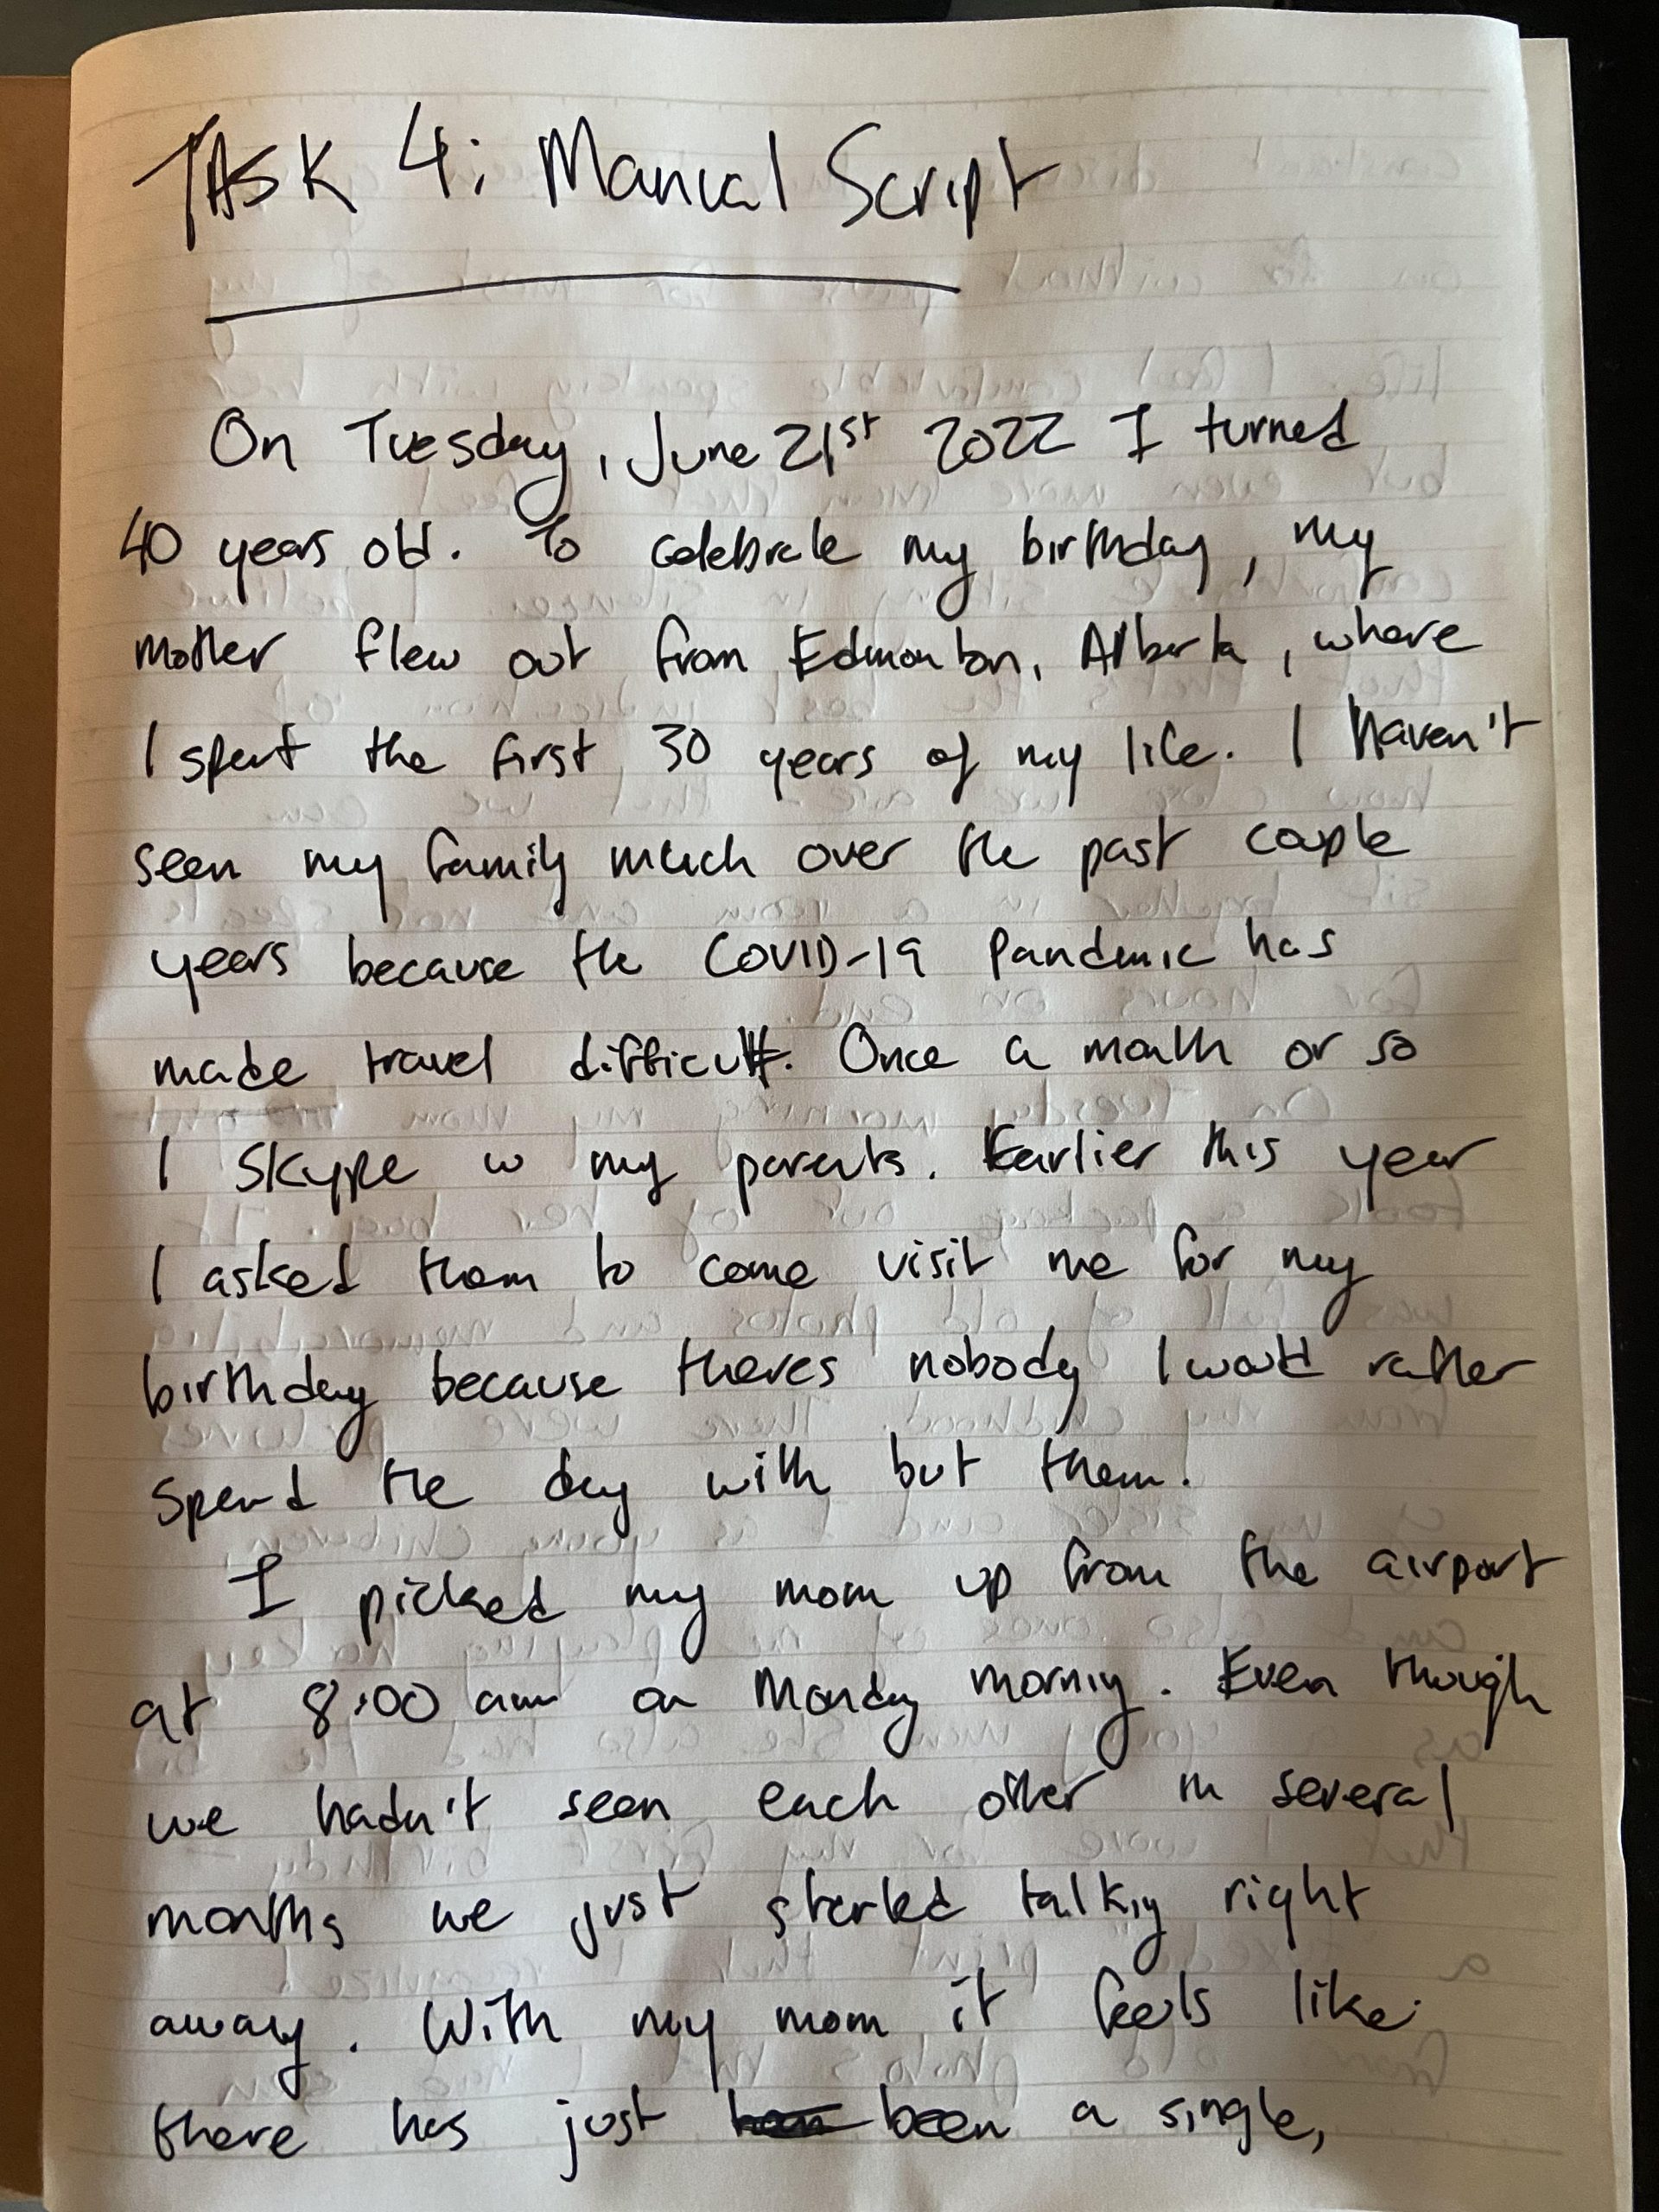 TASK 4: Manual Script
On Tuesday, June 21st 2022 I turned
40 years old. To celebrate my birthday, my
mother flew out from Edmonton, Alberta, where
I spent the first 30 years of my life. I haven't
seen my family much over the past couple
years because the COVID-19 Pandemic has
made travel difficult. Once a month or so
I Skype w my parents. Earlier this year
I asked them to come visit me for my
birthday because theres nobody I would rather
spend the day with but them.
I picked my mom up from the airport
at 8:00 am on Monday morning. Even though
we hadn't seen each other in several
months we just started talking right
away. With my mom it feels like
there has just been a single,